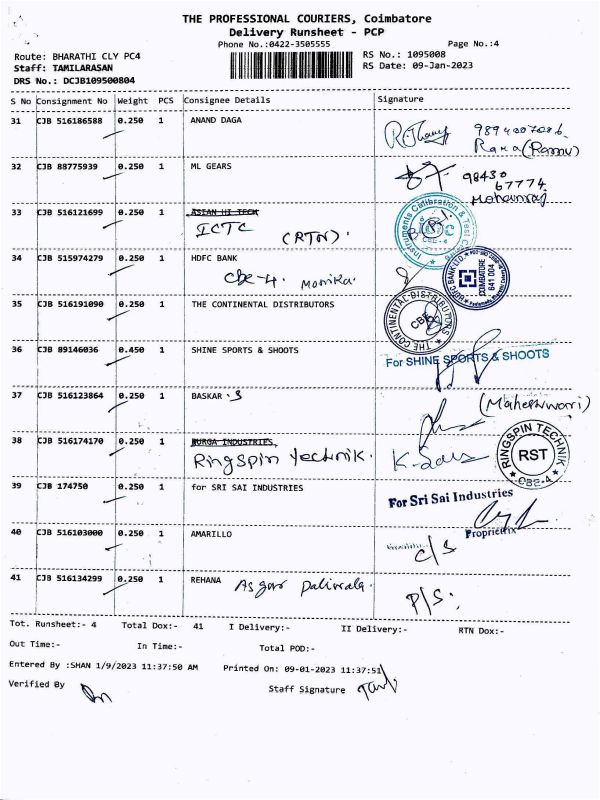 THE PROFESSIONAL COURIERS, Coimbatore
Delivery Runsheet - PCP
Phone No.:0422-3505555
Page No.:4
Route: BHARATHI CLY PC4
RS No.: 1095008
Staff: TAMILARASAN
RS Date: 09-Jan-2023
DRS No.: DCJB109500804
S No Consignment No Weight PCS Consignee Details Signature
31 CJB 516186588 0.250 1 ANAND DAGA
32 CJB 88775939 0.250 1 ML GEARS
98430
67774
Mohanraj
33 CJB 516121699 0.250 1 ASIAN HI TECH
ICTC
(RTN).
Instruments Calibration & Test
34 CJB 515974279 0.250 1 HDFC BANK
CBE-4. Monika.
HDFC BANK LTD.
COIMBATORE
641 004
35 CJB 516191090 0.250 1 THE CONTINENTAL DISTRIBUTORS
THE CONTINENTAL DISTRIBUTORS
CBE
36 CJB 89146036 0.450 1 SHINE SPORTS & SHOOTS
For SHINE SPORTS & SHOOTS
37 CJB 516123864 0.250 1 BASKAR .S
(Maheshwari)
38 CJB 516174170 0.250 1 BURGA INDUSTRIES,
Ringspin technik.
RINGSPIN TECHNIK
RST
CBE-4
39 CJB 174750 0.250 1 for SRI SAI INDUSTRIES
For Sri Sai Industries
Proprietrix
40 CJB 516103000 0.250 1 AMARILLO
C/S
41 CJB 516134299 0.250 1 REHANA
P/S.
Tot. Runsheet:- 4 Total Dox:- 41 I Delivery:- II Delivery:- RTN Dox:-
Out Time:- In Time:- Total POD:-
Entered By :SHAN 1/9/2023 11:37:50 AM Printed On: 09-01-2023 11:37:51
Verified By Staff Signature